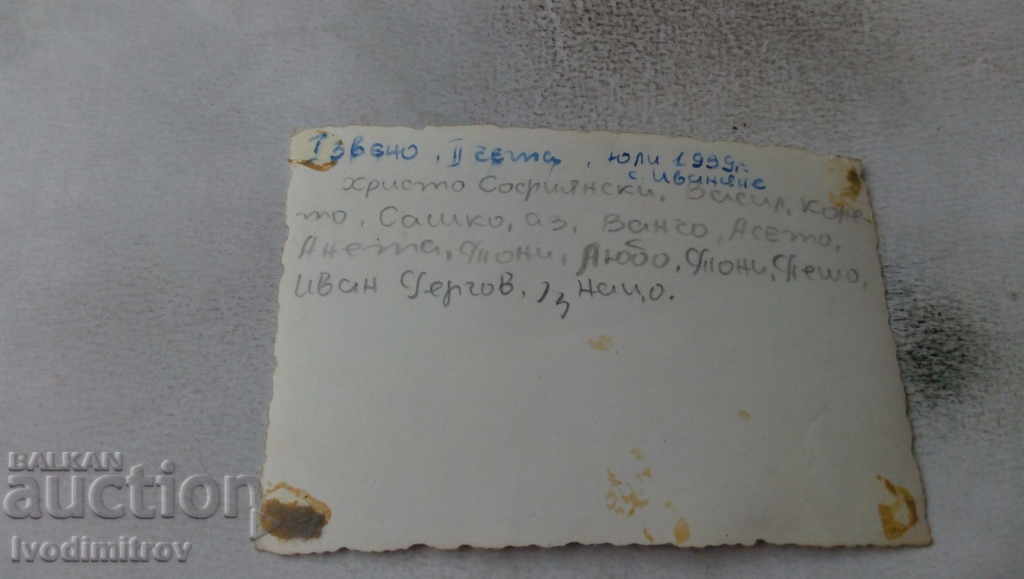 I звено, II чета, юли 1999г.
с. Иваняне
Христо Софиянски, Васил, Коце-
то, Сашко, аз, Ванчо, Асето,
Анета, Тони, Любо, Тони, Пешо,
Иван Гергов, Нацо.
BALKAN
auction
Ivodimitrov